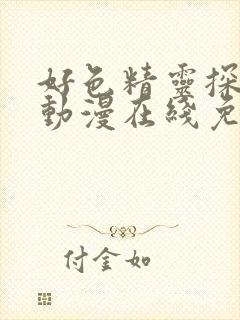 好色精靈探
動漫在綫免
付金如